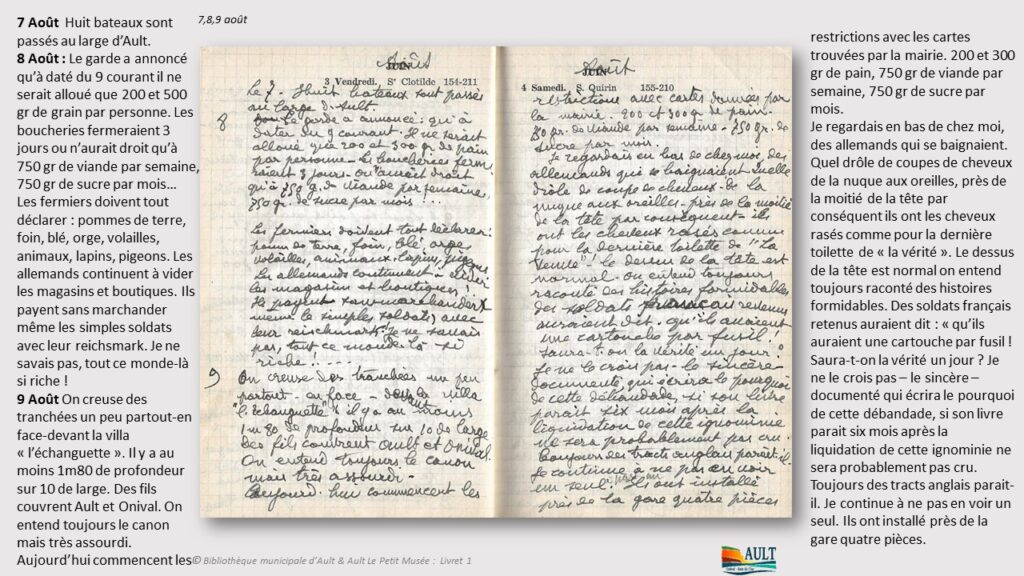 7,8,9 août
7 Août  Huit bateaux sont
passés au large d’Ault.
8 Août : Le garde a annoncé
qu’à daté du 9 courant il ne
serait alloué que 200 et 500
gr de grain par personne. Les
boucheries fermeraient 3
jours ou n’aurait droit qu’à
750 gr de viande par semaine,
750 gr de sucre par mois…
Les fermiers doivent tout
déclarer : pommes de terre,
foin, blé, orge, volailles,
animaux, lapins, pigeons. Les
allemands continuent à vider
les magasins et boutiques. Ils
payent sans marchander
même les simples soldats
avec leur reichsmark. Je ne
savais pas, tout ce monde-là
si riche !
9 Août On creuse des
tranchées un peu partout-en
face-devant la villa
« l’échanguette ». Il y a au
moins 1m80 de profondeur
sur 10 de large. Des fils
couvrent Ault et Onival. On
entend toujours le canon
mais très assourdi.
Aujourd’hui commencent les
Août
3 Vendredi. Sᵉ Clotilde 154-211
Le 7. Huit bateaux sont passés
au large d'Ault.
8 Le garde a annoncé : qu'à
dater du 9 courant. Il ne serait
alloué que 200 et 300 gr de pain
par personne. Les boucheries ferme
raient 3 jours. On n'aurait droit
qu'à 750 g. de viande par semaine,
750 gr. de sucre par mois !...
Les fermiers doivent tout déclarer :
pomm de terre, foin, blé, orge,
volailles, animaux, lapins, pigeons
Les allemands continuent à vider
les magasins et boutiques !
Ils payent sans marchander
même les simples soldats, avec
leur reichsmark. Je ne savais
pas, tout ce monde-là si
riche !...
9 On creuse des tranchées un peu
partout en face - devant la villa
"l'échanguette" il y a au moins
1m80 de profondeur sur 10 de large
Des fils couvrent Ault et Onival.
On entend toujours le canon
mais très assourdi -
Aujourd'hui commencent les
Août
4 Samedi. S. Quirin 155-210
restrictions avec cartes données par
la mairie. 200 et 300 gr de pain.
gr. de viande par semaine - 750 gr. de
sucre par mois.
Je regardais en bas de chez moi, des
allemands qui se baignaient. Quelle
drôle de coupe de cheveux - de la
nuque aux oreilles - près de la moitié
de la tête par conséquent - ils
ont les cheveux rasés comme
pour la dernière toilette de "La
! le dessus de la tête est
normal. On entend toujours
raconté des histoires formidables
des soldats français revenus
auraient dit - qu'ils avaient
une cartouche par fusil !
Saura-t-on la vérité un jour ?
Je ne le crois pas - le sincère
documenté, qui écrira le pourquoi
de cette débandade, si son livre
parait six mois après la
liquidation de cette ignominie
ne sera probablement pas cru.
Toujours des tracts anglais parait-il.
Je continue à ne pas en voir
un seul. Ils ont installé
près de la gare quatre pièces
restrictions avec les cartes
trouvées par la mairie. 200 et 300
gr de pain, 750 gr de viande par
semaine, 750 gr de sucre par
mois.
Je regardais en bas de chez moi,
des allemands qui se baignaient.
Quel drôle de coupes de cheveux
de la nuque aux oreilles, près de
la moitié de la tête par
conséquent ils ont les cheveux
rasés comme pour la dernière
toilette de « la vérité ». Le dessus
de la tête est normal on entend
toujours raconté des histoires
formidables. Des soldats français
retenus auraient dit : « qu’ils
auraient une cartouche par fusil !
Saura-t-on la vérité un jour ? Je
ne le crois pas – le sincère –
documenté qui écrira le pourquoi
de cette débandade, si son livre
parait six mois après la
liquidation de cette ignominie ne
sera probablement pas cru.
Toujours des tracts anglais parait-
il. Je continue à ne pas en voir un
seul. Ils ont installé près de la
gare quatre pièces.
© Bibliothèque municipale d’Ault & Ault Le Petit Musée :  Livret 1
AULT